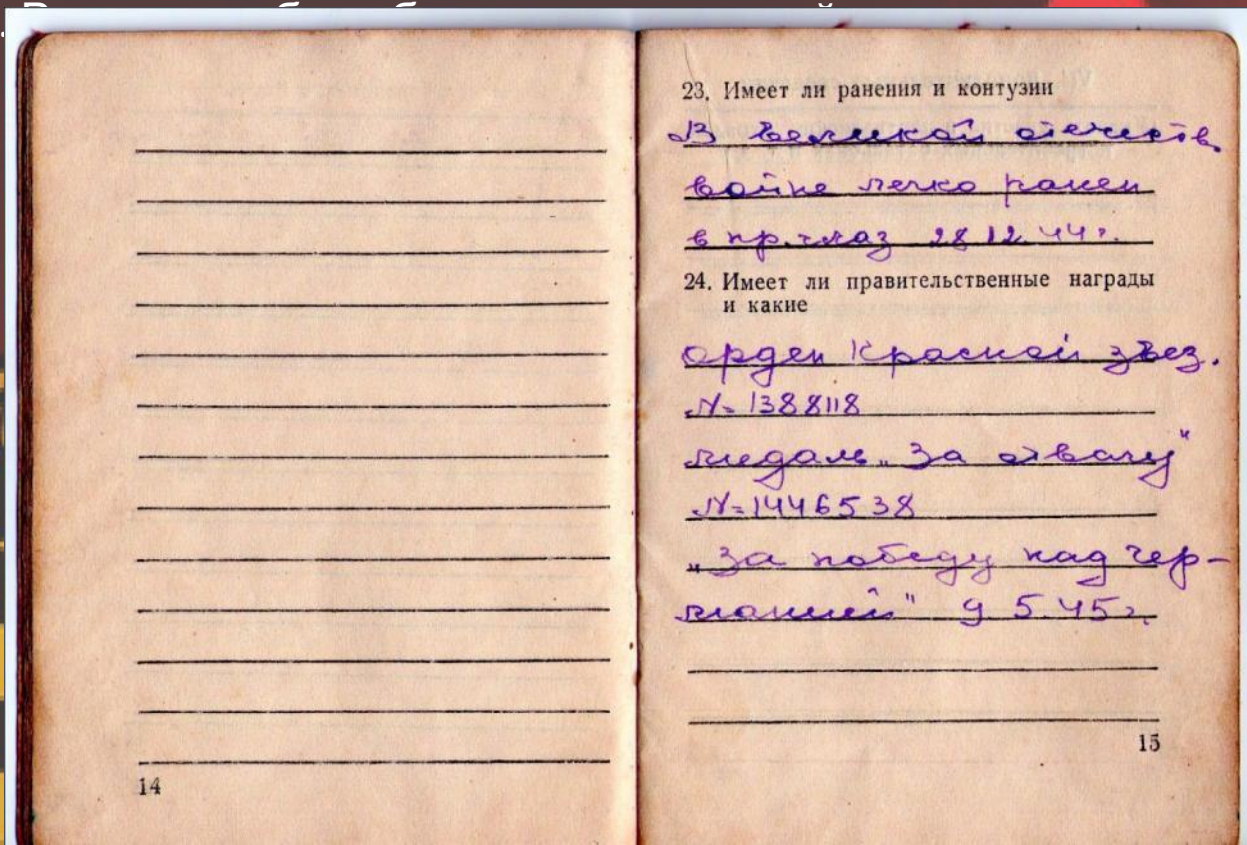 23. Имеет ли ранения и контузии
В великой отечеств.
войне легко ранен
в пр. глаз 28 12. 44 г.
24. Имеет ли правительственные награды
и какие
орден Красной звез.
N= 1388118
медаль „За отвагу"
N= 1446538
„За победу над гер-
манией" 9 5. 45 г.
15
14